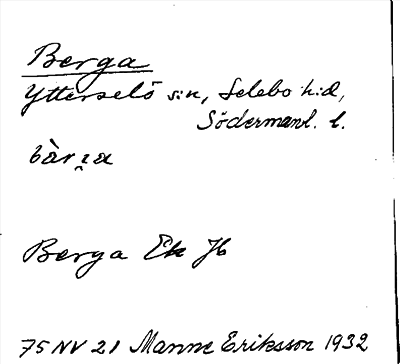 Berga
Ytterselö s:n, Selebo h:d,
Södermanl. l.
Berga Ek Jb
75 NV 21 Manne Eriksson 1932